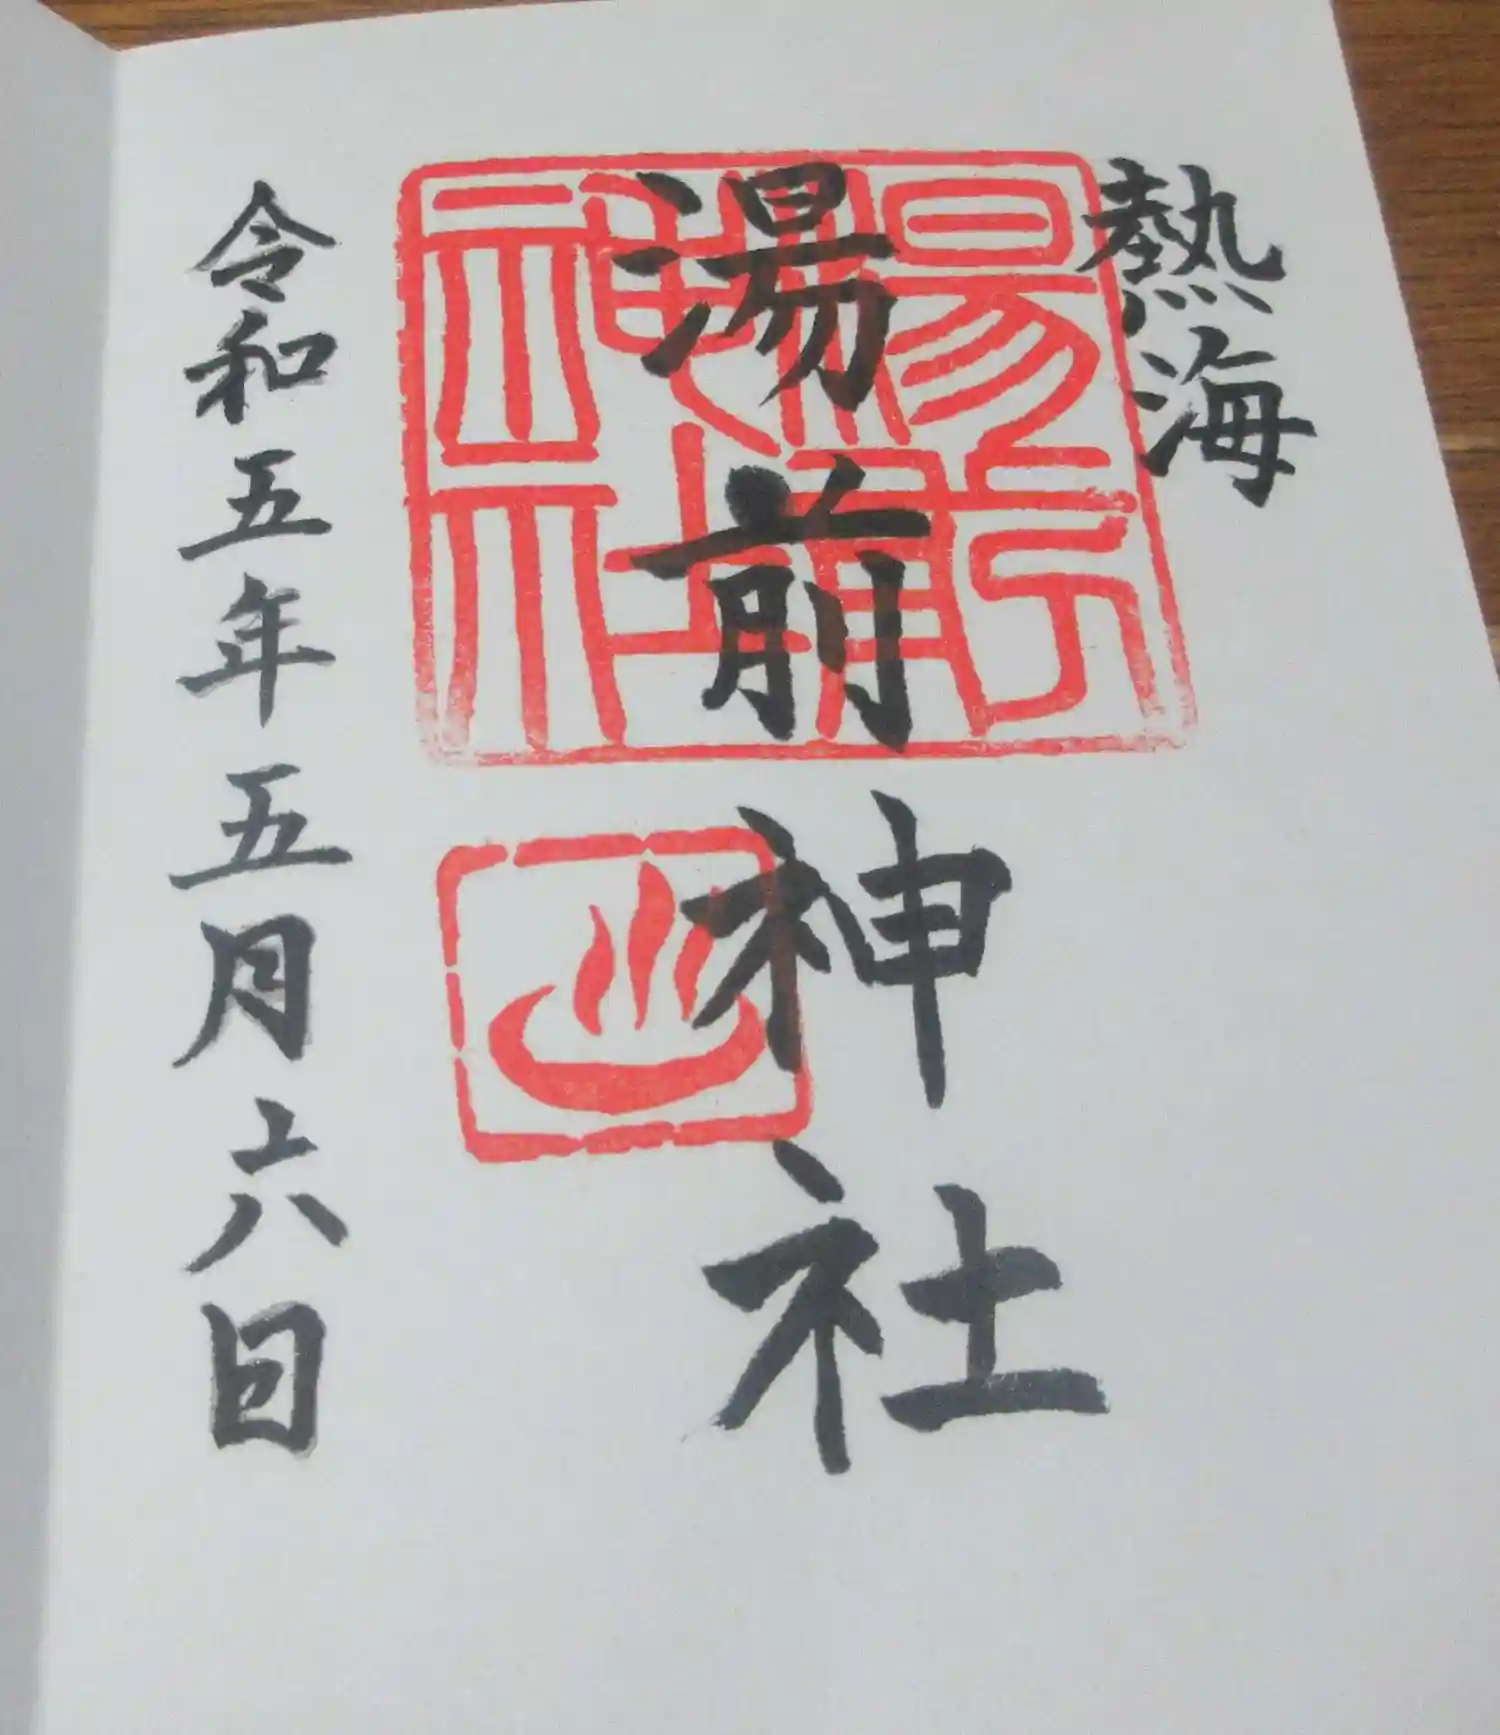 熱海
湯前神社
令和五年五月六日
湯前
神社